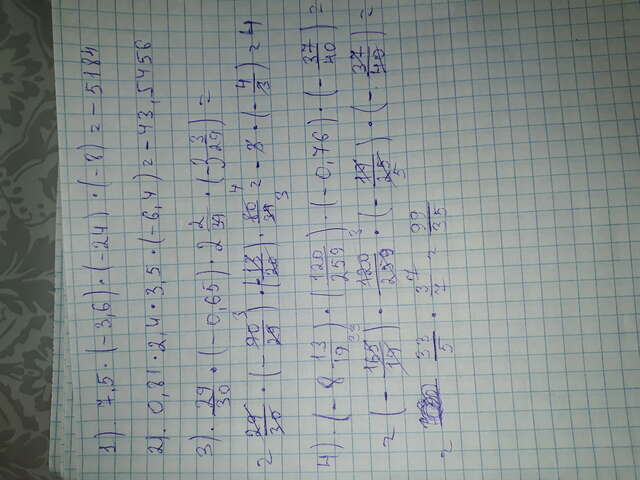 1). 7,5 · (-3,6) · (-24) · (-8) = - 5184
2). 0,81 · 2,4 · 3,5 · (-6,4) = - 43,5456
3). 29/30 · (-0,65) · 2 2/39 · (-3 3/29) =
= 29/30 · (- 90/29) 3 · (- 13/20) · 80/39 4 3 = - 3 · (- 4/3) = 4
4). (- 8 13/19) · (120/259) · (-0,76) · (- 37/40) =
= (- 165/19) 33 · 120/259 3 · (- 19/25) 5 · (- 37/40) =
= 33/5 · 3/7 7 = 99/35